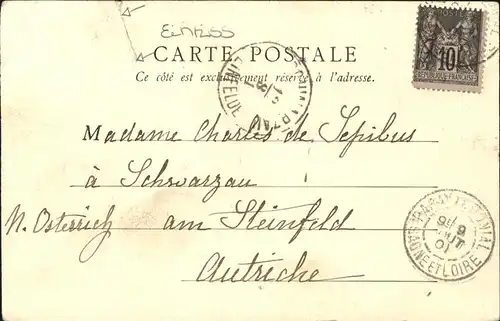 EINRISS
CARTE POSTALE
Ce côté est exclusivement réservé à l'adresse.
10
REPUBLIQUE FRANÇAISE
Madame Charles de Sepibus
à Schwarzau
N. Osterrich am Steinfeld
Autriche
PARAY LE MONIAL
9 AOUT 01
SAONE ET LOIRE